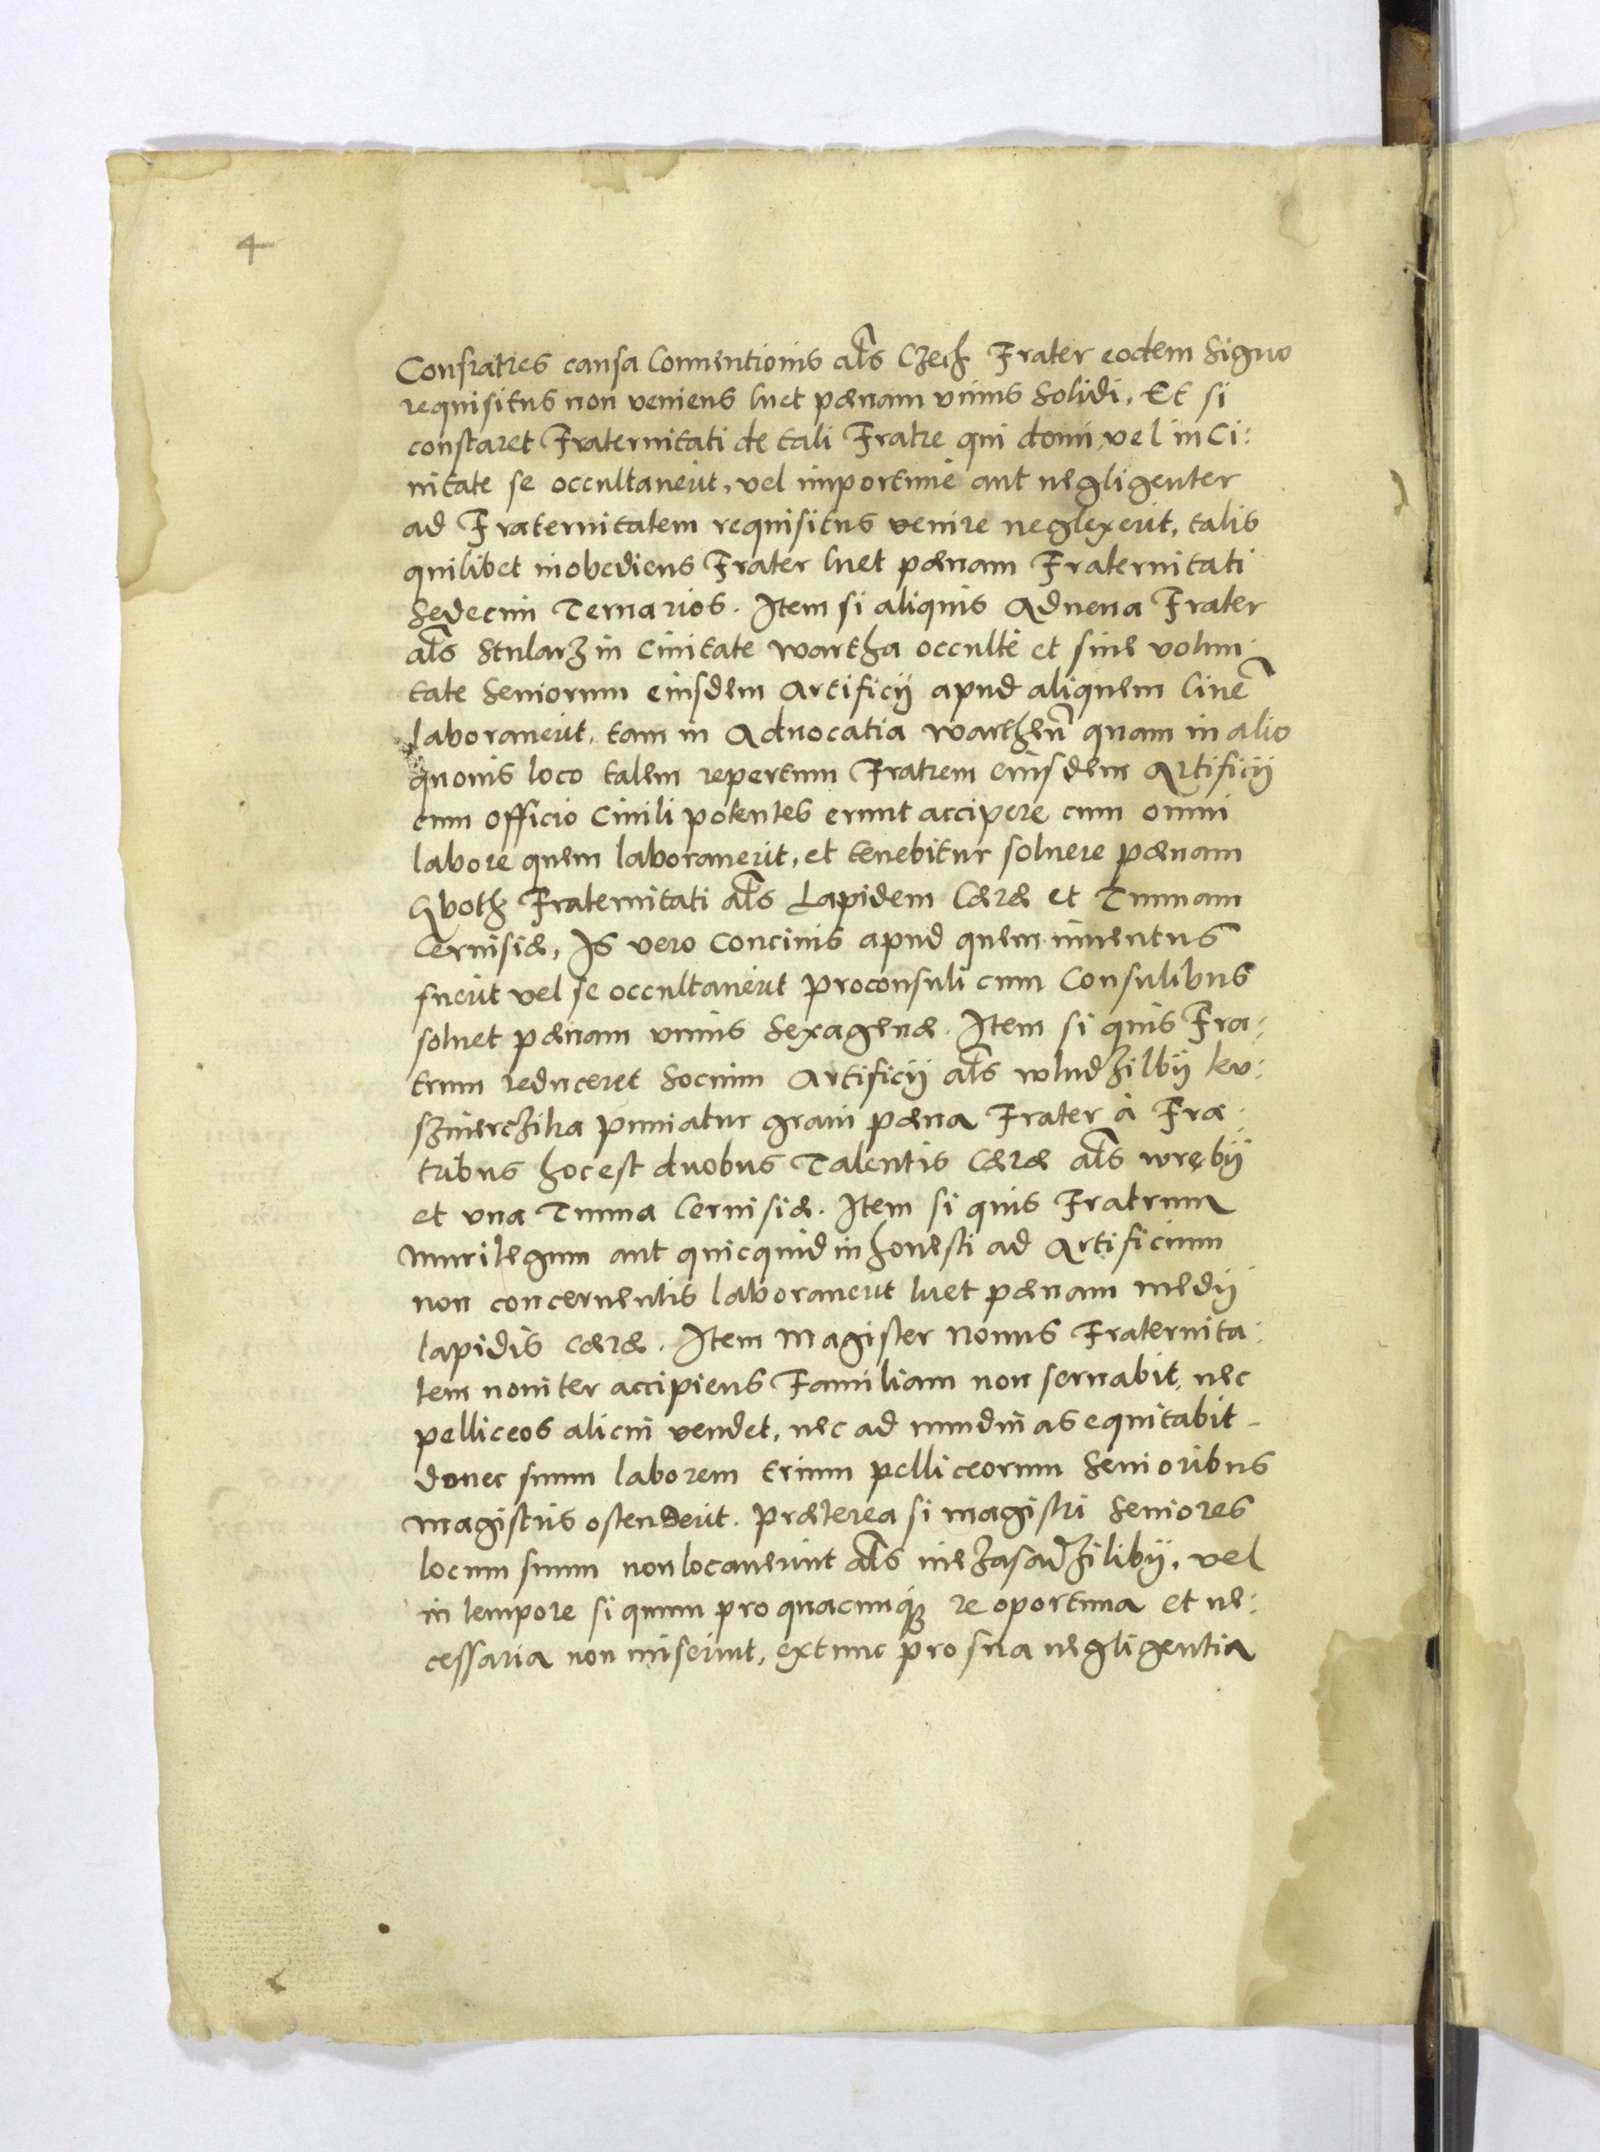 4
Confratres causa Conuentionis als Czech Frater eodem Signo
requisitus non veniens luet pænam vnius Solidi, Et si
constaret Fraternitati de tali Fratre qui domi, vel in Ci:
uitate se occultauerit, vel importunè aut negligenter
ad Fraternitatem requisitus venire neglexerit, talis
quilibet inobediens Frater luet pænam Fraternitati
Sedecim Ternarios. Item si aliquis Aduena Frater
als Stularz in Ciuitate Wartha occultè et sine volun:
tate Seniorum eiusdem Artificij apud aliquem Ciue
laborauerit, tam in Aduocatia Warthen quam in alio
quouis loco talem repertum Fratrem eiusdem Artificij
cum officio Ciuili potentes erunt accipere cum omni
labore quem laborauerit, et tenebitur soluere pænam
Fraternitati als Lapidem Cæræ et Tunnam
Ceruisiæ, Is vero Conciuis apud quem inuentus
fuerit vel se occultauerit Proconsuli cum Consulibus
soluet pænam vnius Sexagenæ. Item si quis Fra:
trum reduceret Socium Artificij als wludzilby
puniatur graui pæna Frater à Fra:
tribus hoc est duobus Talentis Cæræ als wręby
et vna Tunna Ceruisiæ. Item si quis Fratrum
Murilegum aut quicquid inhonesti ad Artificium
non concernentis laborauerit luet pænam medij
lapidis Cæræ. Item Magister Nouus Fraternita:
tem nouiter accipiens Familiam non seruabit, nec
pelliceos alicui vendet, nec ad nundinas equitabit
donec suum laborem trium pelliceorum Senioribus
Magistris ostenderit. Præterea si magistri Seniores
locum suum non locauerint als niezasadziliby, vel
in tempore signum pro quacunq3 re oportuna et ne:
cessaria non miserint, extunc pro sua negligentia